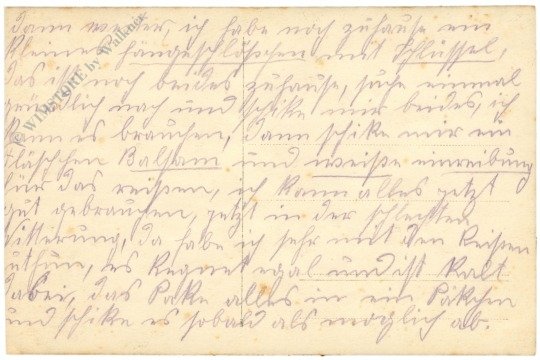 dann wieder, ich habe noch zuhause ein
kleines hängeschlößchen mit Schlüssel,
das ist noch beides zuhause, suche einmal
gründlich nach und schike mir beides, ich
kann es brauchen, dann schike mir ein
fläschchen Balsam und weiße einreibung
für das reißen, ich kann alles jetzt
gut gebrauchen, jetzt in der schlechten
Witterung, da habe ich sehr mit den Reißen
zuthun, es Regnet egal und ist kalt
dabei, das Pake alles in ein Päkchen
und schike es sobald als möglich ab.
WWIISTORE by Walkner